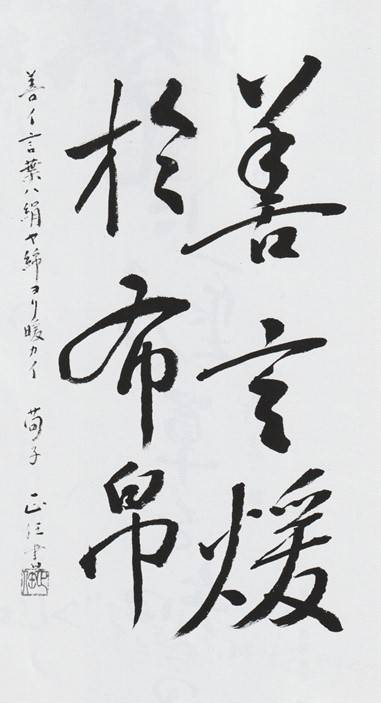 善言煖
於布帛
善イ言葉ハ絹ヤ綿ヨリ暖カイ 荀子 正征書